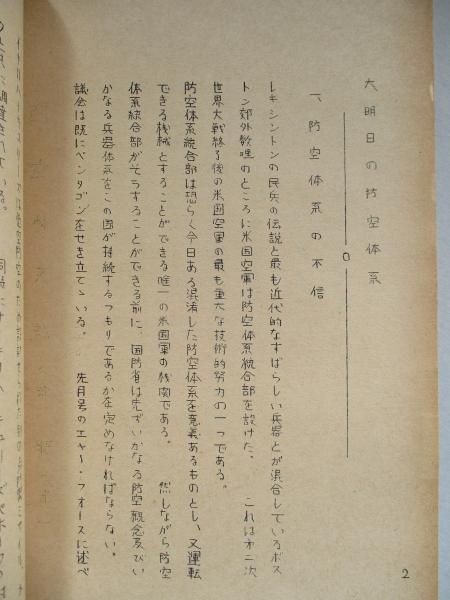 六、明日の防空体系
一、防空体系の不信
レキシントンの民兵の伝説と最も近代的なすばらしい兵器とが混合しているボス
トン郊外数哩のところに米国空軍は防空体系統合部を設けた。 これは第二次
世界大戦終了後の米国空軍の最も重大な技術的努力の一つである。
防空体系統合部は恐らく今日ある混淆した防空体系を意義あるものとし、又運転
できる機械とすることができる唯一の米国軍の機関である。 然しながら防空
体系統合部がそうすることができる前に、国防省は先ずいかなる防空観念及びい
かなる兵器体系をこの国が持続するつもりであるかを定めなければならない。
議会は既にペンタゴンをせき立てゝいる。 先月号のエヤー・フォースに述べ
2